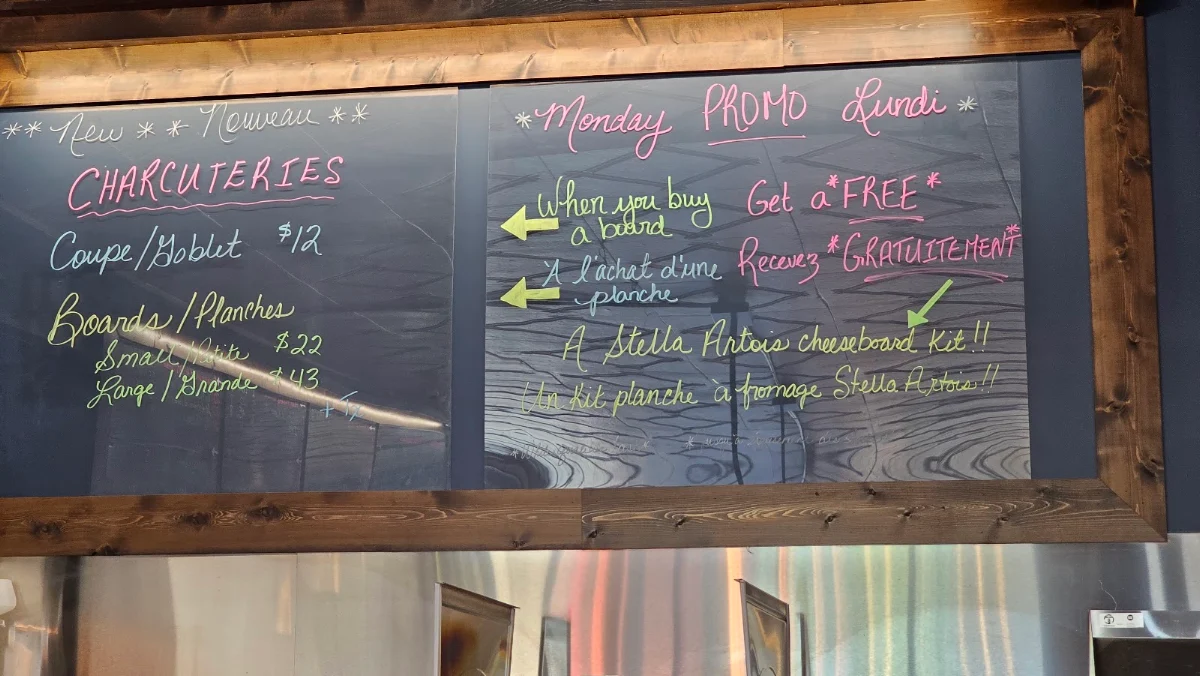 ** New * * Nouveau **
CHARCUTERIES
Coupe/Goblet $12
Boards/Planches
Small/Petite $22
Large/Grande $43
+ Tx
*Monday PROMO Lundi*
When you buy
a board
À l'achat d'une
planche
Get a *FREE*
Recevez *GRATUITEMENT*
A Stella Artois cheeseboard Kit!!
Un Kit planche à fromage Stella Artois!!